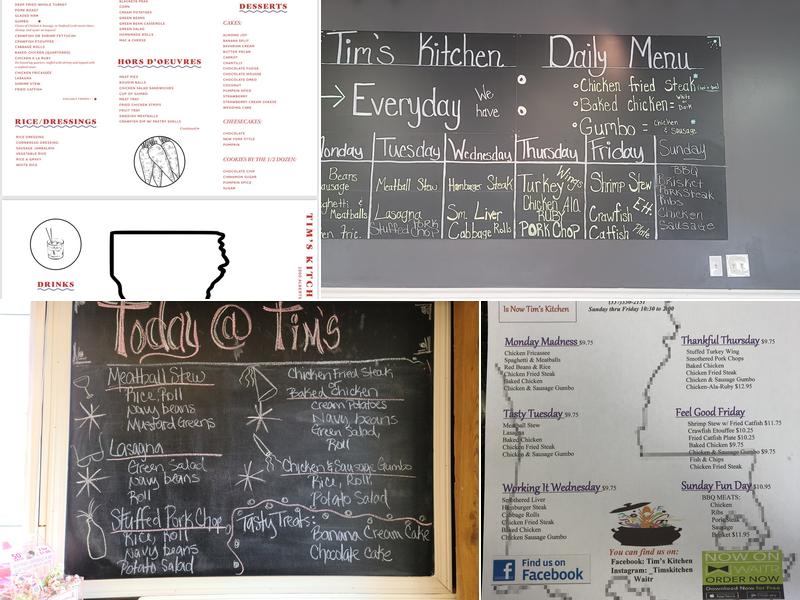 DEEP FRIED WHOLE TURKEY
PORK ROAST
GLAZED HAM
GUMBO
CRAWFISH OR SHRIMP FETTUCINI
CRAWFISH ETOUFFEE
CABBAGE ROLLS
BAKED CHICKEN (QUARTERED)
CHICKEN A LA RUBY
CHICKEN FRICASSEE
LASAGNA
SHRIMP STEW
FRIED CATFISH
RICE/DRESSINGS
RICE DRESSING
CORNBREAD DRESSING
SAUSAGE JAMBALAYA
VEGETABLE RICE
RICE & GRAVY
WHITE RICE
BLACKEYE PEAS
CORN
CREAM POTATOES
GREEN BEANS
GREEN BEAN CASSEROLE
GREEN SALAD
HOMEMADE ROLLS
MAC & CHEESE
HORS D'OEUVRES
MEAT PIES
BOUDIN BALLS
CHICKEN SALAD SANDWICHES
CUP OF GUMBO
MEAT TRAY
FRIED CHICKEN STRIPS
FRUIT TRAY
SWEDISH MEATBALLS
CRAWFISH DIP W/ PASTRY SHELLS
Continued
DESSERTS
CAKES:
ALMOND JOY
BANANA SPLIT
BAVARIAN CREAM
BUTTER PECAN
CARROT
CHANTILLY
CHOCOLATE FUDGE
CHOCOLATE MOUSSE
CHOCOLATE OREO
COCONUT
PUMPKIN SPICE
STRAWBERRY
STRAWBERRY CREAM CHEESE
WEDDING CAKE
CHEESECAKES:
CHOCOLATE
NEW YORK STYLE
PUMPKIN
COOKIES BY THE 1/2 DOZEN:
CHOCOLATE CHIP
CINNAMON SUGAR
PUMPKIN SPICE
SUGAR
DRINKS
TIM'S KITCH
Tim's Kitchen Daily Menu
Everyday We have
Chicken fried Steak
Baked chicken= White or Dark
Gumbo = chicken & Sausage
Monday Tuesday Wednesday Thursday Friday Sunday
Beans
Sausage
Spaghetti &
Meatballs
Meatball Stew
Lasagna
Stuffed Pork Chop
Hamburger Steak
Sm. Liver
Cabbage Rolls
Turkey Wings
Chicken Ala
RUBY
PORK Chop
Shrimp Stew
Crawfish Ett.
Catfish Plate
BBQ
Brisket
Pork Steak
Ribs
Chicken
Sausage
Today @ Tim's
Meatball Stew
Rice, Roll
Navy beans
Mustard Greens
Lasagna
Green Salad
Navy beans
Roll
Stuffed Pork Chop
Rice, Roll
Navy beans
Potato Salad
Chicken Fried Steak
or
Baked Chicken
cream Potatoes
Navy beans
Green Salad,
Roll
Chicken & Sausage Gumbo
Rice, Roll,
Potato Salad
Tasty Treats:
Banana Cream Cake
Chocolate Cake
Is Now Tim's Kitchen
Sunday thru Friday 10:30 to 2:00
Monday Madness $9.75
Chicken Fricassee
Spaghetti & Meatballs
Red Beans & Rice
Chicken Fried Steak
Baked Chicken
Chicken & Sausage Gumbo
Tasty Tuesday $9.75
Meatball Stew
Lasagna
Baked Chicken
Chicken Fried Steak
Chicken & Sausage Gumbo
Working It Wednesday $9.75
Smothered Liver
Hamburger Steak
Cabbage Rolls
Chicken Fried Steak
Baked Chicken
Chicken Sausage Gumbo
Thankful Thursday $9.75
Stuffed Turkey Wing
Smothered Pork Chops
Baked Chicken
Chicken Fried Steak
Chicken & Sausage Gumbo
Chicken-Ala-Ruby $12.95
Feel Good Friday
Shrimp Stew w/ Fried Catfish $11.75
Crawfish Etouffee $10.25
Fried Catfish Plate $10.25
Baked Chicken $9.75
Chicken & Sausage Gumbo $9.75
Fish & Chips
Chicken Fried Steak
Sunday Fun Day $10.95
BBQ MEATS:
Chicken
Ribs
Pork Steak
Sausage
Brisket $11.95
You can find us on:
Facebook: Tim's Kitchen
Instagram: _Timskitchen
Waitr
Find us on
Facebook
NOW ON
WAITR
ORDER NOW
Download Now for Free